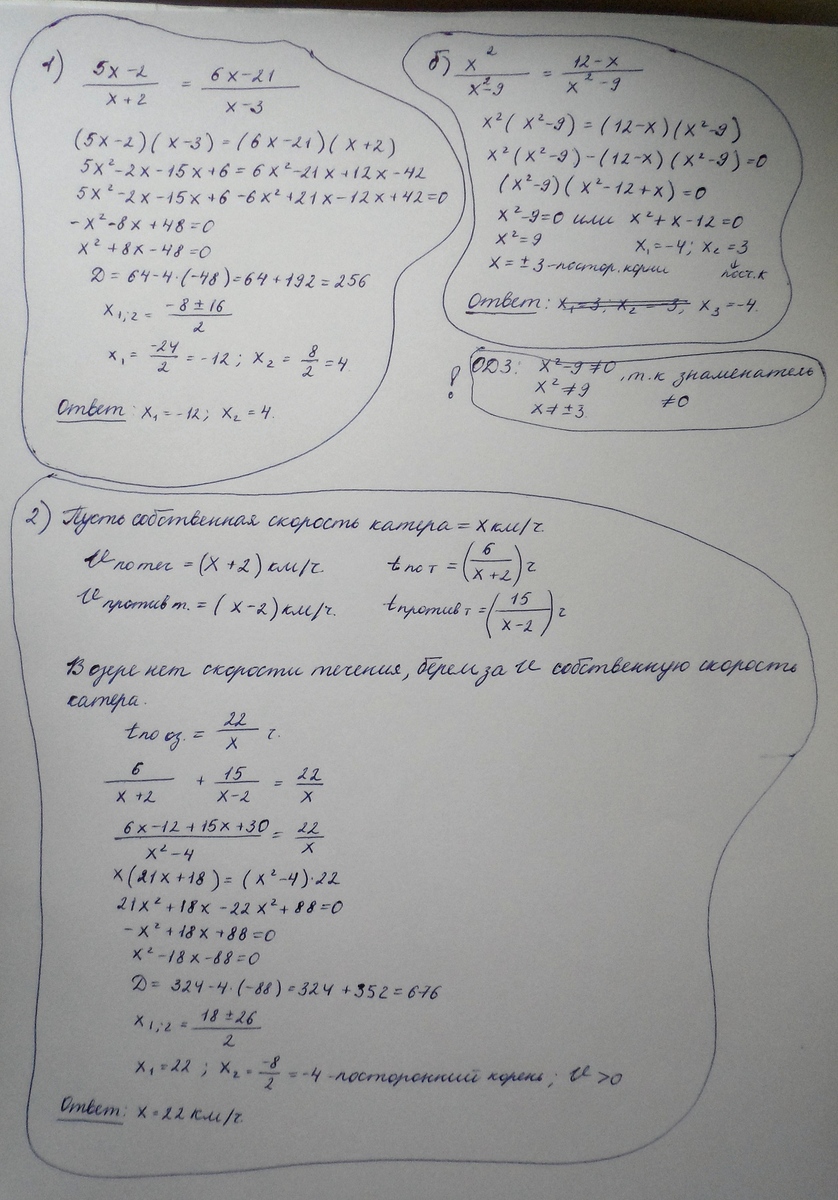 1) (5x-2)/(x+2) = (6x-21)/(x-3)
(5x-2)(x-3)=(6x-21)(x+2)
5x²-2x-15x+6=6x²-21x+12x-42
5x²-2x-15x+6-6x²+21x-12x+42=0
-x²-8x+48=0
x²+8x-48=0
D=64-4·(-48)=64+192=256
x₁;₂= (-8±16)/2
x₁= -24/2 =-12; x₂= 8/2 =4.
Ответ: x₁=-12; x₂=4.
б) x²/(x²-9) = (12-x)/(x²-9)
x²(x²-9)=(12-x)(x²-9)
x²(x²-9)-(12-x)(x²-9)=0
(x²-9)(x²-12+x)=0
x²-9=0 или x²+x-12=0
x²=9 x₁=-4; x₂=3
x=±3-постор. корни ↓ пост. к
Ответ: x₁=3; x₂=-3; x₃=-4.
! ОДЗ: x²-9≠0, т.к знаменатель
x²≠9 ≠0
x≠±3
2) Пусть собственная скорость катера = x км/ч.
V по теч =(x+2) км/ч. t по т =(6/(x+2)) ч
V против т. =(x-2) км/ч. t против т =(15/(x-2)) ч
В озере нет скорости течения, берем за V собственную скорость
катера.
t по оз. = 22/x ч.
6/(x+2) + 15/(x-2) = 22/x
(6x-12+15x+30)/(x²-4) = 22/x
x(21x+18)=(x²-4)·22
21x²+18x-22x²+88=0
-x²+18x+88=0
x²-18x-88=0
D= 324-4·(-88)=324+352=676
x₁;₂= (18±26)/2
x₁=22; x₂= -8/2 =-4 -посторонний корень; V>0
Ответ: x=22 км/ч.